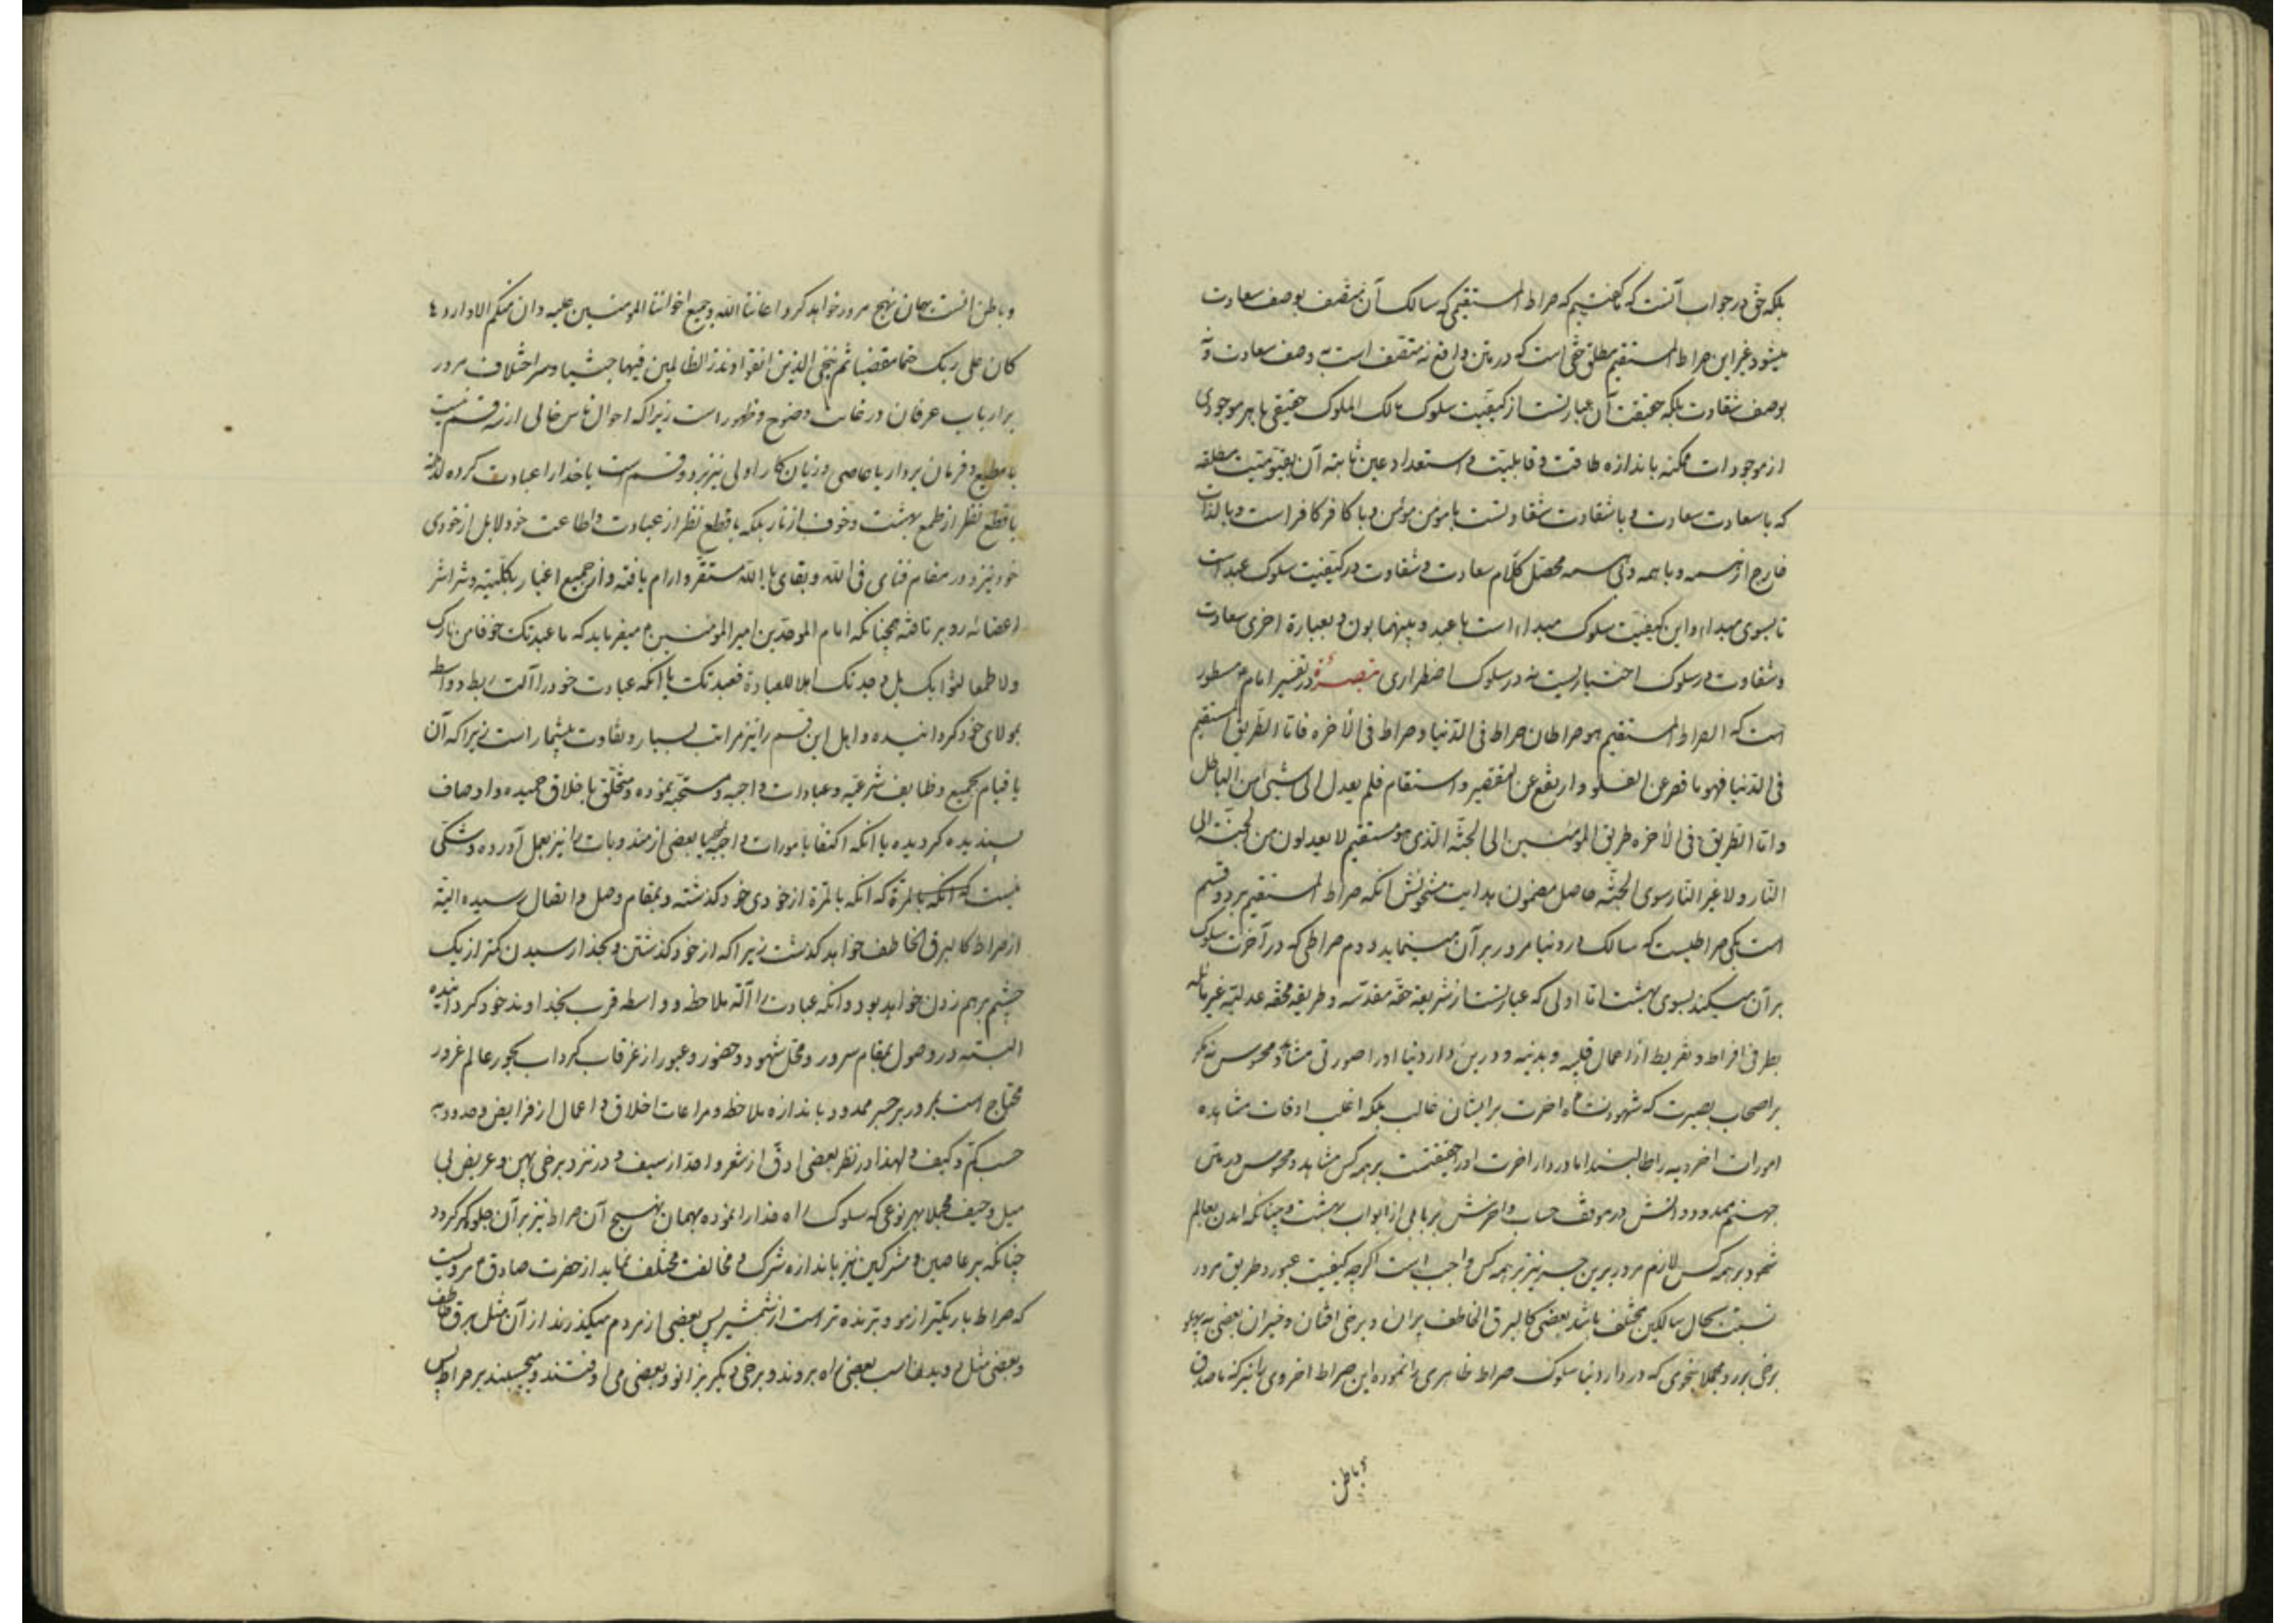 بلکه حق در جواب آنست که گفتیم که صراط المستقیمی که سالک آن متصف بوصف سعادت
میشود غیر این صراط المستقیم مطلق حقی است که در متن واقع نه متصف است به وصف سعادت و نه
بوصف شقاوت بلکه حقیقت آن عبارتست از کیفیت سلوک مالک الملوک حقیقی با هر موجودی
از موجودات ممکنه باندازه طاقت و قابلیت و استعداد عین ثابته آن بقیومیت مطلقه
که با سعادت سعادت و با شقاوت شقاوتست با مومن مومن و با کافر کافر است و بالذات
خارج از همه و با همه و بی همه محصل کلام سعادت و شقاوت در کیفیت سلوک عبد است
تا بسوی مبداء و این کیفیت سلوک مبداء است با عبد و بینهما بون و بعبارة اخری سعادت
و شقاوت در سلوک اختیاریست نه در سلوک اضطراری تبصرة در تفسیر امام ع مسطور
است که الصراط المستقیم هو صراطان صراط فی الدنیا و صراط فی الأخره فاما الطریق المستقیم
فی الدنیا فهو ما قصر عن الغلو و ارتفع عن التقصیر و استقام فلم یعدل الی شیئ من الباطل
و اما الطریق فی الأخره طریق المومنین الی الجنة الذی هو مستقیم لا یعدلون من الجنة الی
النار و لا غیر النار سوی الجنة حاصل مضمون هدایت مشحونش انکه صراط المستقیم بر دو قسم
است یکی صراطیست که سالک در دنیا مرور بر آن مینماید و دم صراطی که در آخرت سلوک
بر آن میکند بسوی بهشت اما اولی که عبارتست از شریعه حقه مقدسه و طریقه محقه عدلیه غیر مائله
بطرفی افراط و تفریط از اعمال قلبیه و بدنیه و در این دار دنیا او را صورتی مشاهد و محسوس نه مگر
بر اصحاب بصیرت که شهود نشاه اخرت بر ایشان غالب بلکه اغلب اوقات مشاهده
امورات اخرویه را طالبند اما در دار اخرت او را حقیقتست بر همه کس مشاهد و محسوس در متن
جهنم ممدود و اولش در موقف حساب و اخرش بر بابی از ابواب بهشت و چنانکه امدن بعالم
شهود بر همه کس لازم مرور بر این جسر نیز بر همه کس واجب است اگرچه کیفیت عبور و طریق مرور
نسبت بحال سالکین مختلف باشد بعضی کالبرق الخاطف پران و برخی افتان و خیزان بعضی به پهلو
برخی برو و مجملا بنحوی که در دار دنیا سلوک صراط ظاهری را نموده این صراط اخروی را نیز که ماصدق
و باطن
و باطن انست بهمان نهج مرور خواهد کرد اعاننا الله و جمیع اخواننا المومنین علیه و ان منکم الا واردها
کان علی ربک حتما مقضیا ثم ننجی الذین اتقوا و نذر الظالمین فیها جثیا و سر اختلاف مرور
بر ارباب عرفان در غایت وضوح و ظهور است زیرا که احوال ناس خالی از دو قسم نیست
یا مطیع و فرمان بردار یا عاصی و زیان کار اولی نیز بر دو قسم است یا خدا را عبادت کرده لذاته
با قطع نظر از طمع بهشت و خوف از نار بلکه با قطع نظر از عبادت و اطاعت خود لابل از خودی
خود نیز و در مقام فنای فی الله و بقای بالله مستقر و ارام یافته و از جمیع اغیار بکلیته و شراشر
اعضائه رو بر تافته چنانکه امام الموحدین امیر المومنین ع میفرماید که ما عبدتک خوفا من نارک
و لا طمعا لثوابک بل وجدتک اهلا للعبادة فعبدتک یا انکه عبادت خود را آلت ربط و واسطه
بمولای خود گردانیده و اهل این قسم را نیز مراتب بسیار و تفاوت بیشمار است زیرا که آن
یا قیام بجمیع وظایف شرعیه و عبادات واجبه و مستحبه نموده و متخلق باخلاق حمیده و اوصاف
پسندیده گردیده یا انکه اکتفا بامورات واجبه یا بعضی از مندوبات را نیز بعمل آورده و شکی
نیست که انکه بالمرة که انکه بالمرة از خودی خود گذشته و بمقام وصل و اتصال رسیده البته
از صراط کالبرق الخاطف خواهد گذشت زیرا که از خود گذشتن و بخدا رسیدن کمتر از یک
چشم برهم زدن خواهد بود و انکه عبادت را آلة ملاحظه و واسطه قرب بخداوند خود گردانیده
البته در وصول بمقام سرور و محل شهود و حضور و عبور از غرقاب گرداب بحور عالم غرور
محتاج است بمرور بر جسر ممدود باندازه ملاحظه و مراعات اخلاق و اعمال از فرایض و حدود به
حسب کم و کیف و لهذا در نظر بعضی ادق از شعر و احد از سیف و در نزد برخی پهن و عریض بی
میل و حیف مجملا بهر نوعی که سلوک راه خدا را نموده بهمان نهج آن صراط نیز بر آن جلوه گر گردد
چنانکه بر عاصین و مشرکین نیز باندازه شرک و مخالفت مختلف نماید از حضرت صادق ع مرویست
که صراط باریکتر از مو و برنده تر است از شمشیر پس بعضی از مردم میگذرند از آن مثل برق خاطف
و بعضی مثل دویدن اسب بعضی راه بروند و برخی دیگر بزانو و بعضی می اوفتند و میچسبند بر صراط پس